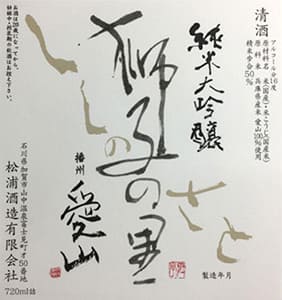 清酒
アルコール分16度
原材料名 米(国産)・米こうじ(国産米)
原料米 兵庫県産米 愛山100%使用
精米歩合50%
純米大吟醸
獅子の里
ししのさと
播州
愛山
製造年月
お酒は20歳になってから。
妊娠中・授乳期の飲酒はお控え下さい。
石川県加賀市山中温泉富士見町オ50番地
松浦酒造有限会社
720ml詰